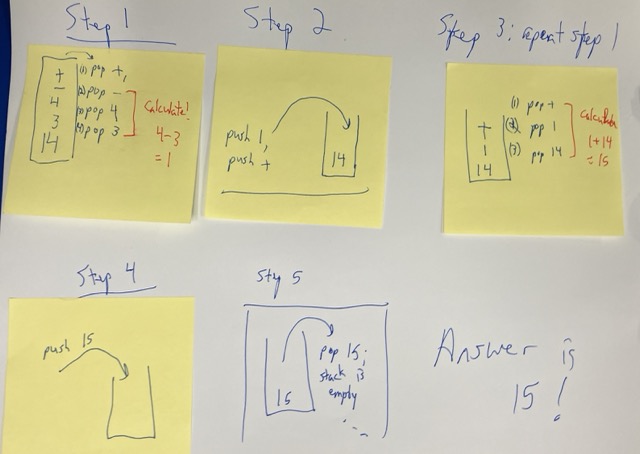 Step 1
+
-
4
3
14
(1) pop +,
(2) pop -
(3) pop 4
(4) pop 3
Calculate!
4-3
=1
Step 2
push 1,
push +
14
Step 3: repeat step 1
+
1
14
(1) pop +
(2) pop 1
(3) pop 14
calculate
1+14
=15
Step 4
push 15
Step 5
15
pop 15;
stack is
empty
Answer is
15!